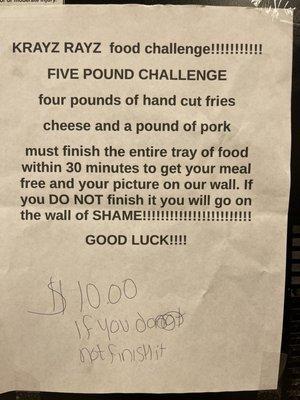 or or moderate injury.
KRAYZ RAYZ food challenge!!!!!!!!!!!
FIVE POUND CHALLENGE
four pounds of hand cut fries
cheese and a pound of pork
must finish the entire tray of food
within 30 minutes to get your meal
free and your picture on our wall. If
you DO NOT finish it you will go on
the wall of SHAME!!!!!!!!!!!!!!!!!!!!!!!!
GOOD LUCK!!!!
$10.00
if you do
not finish it